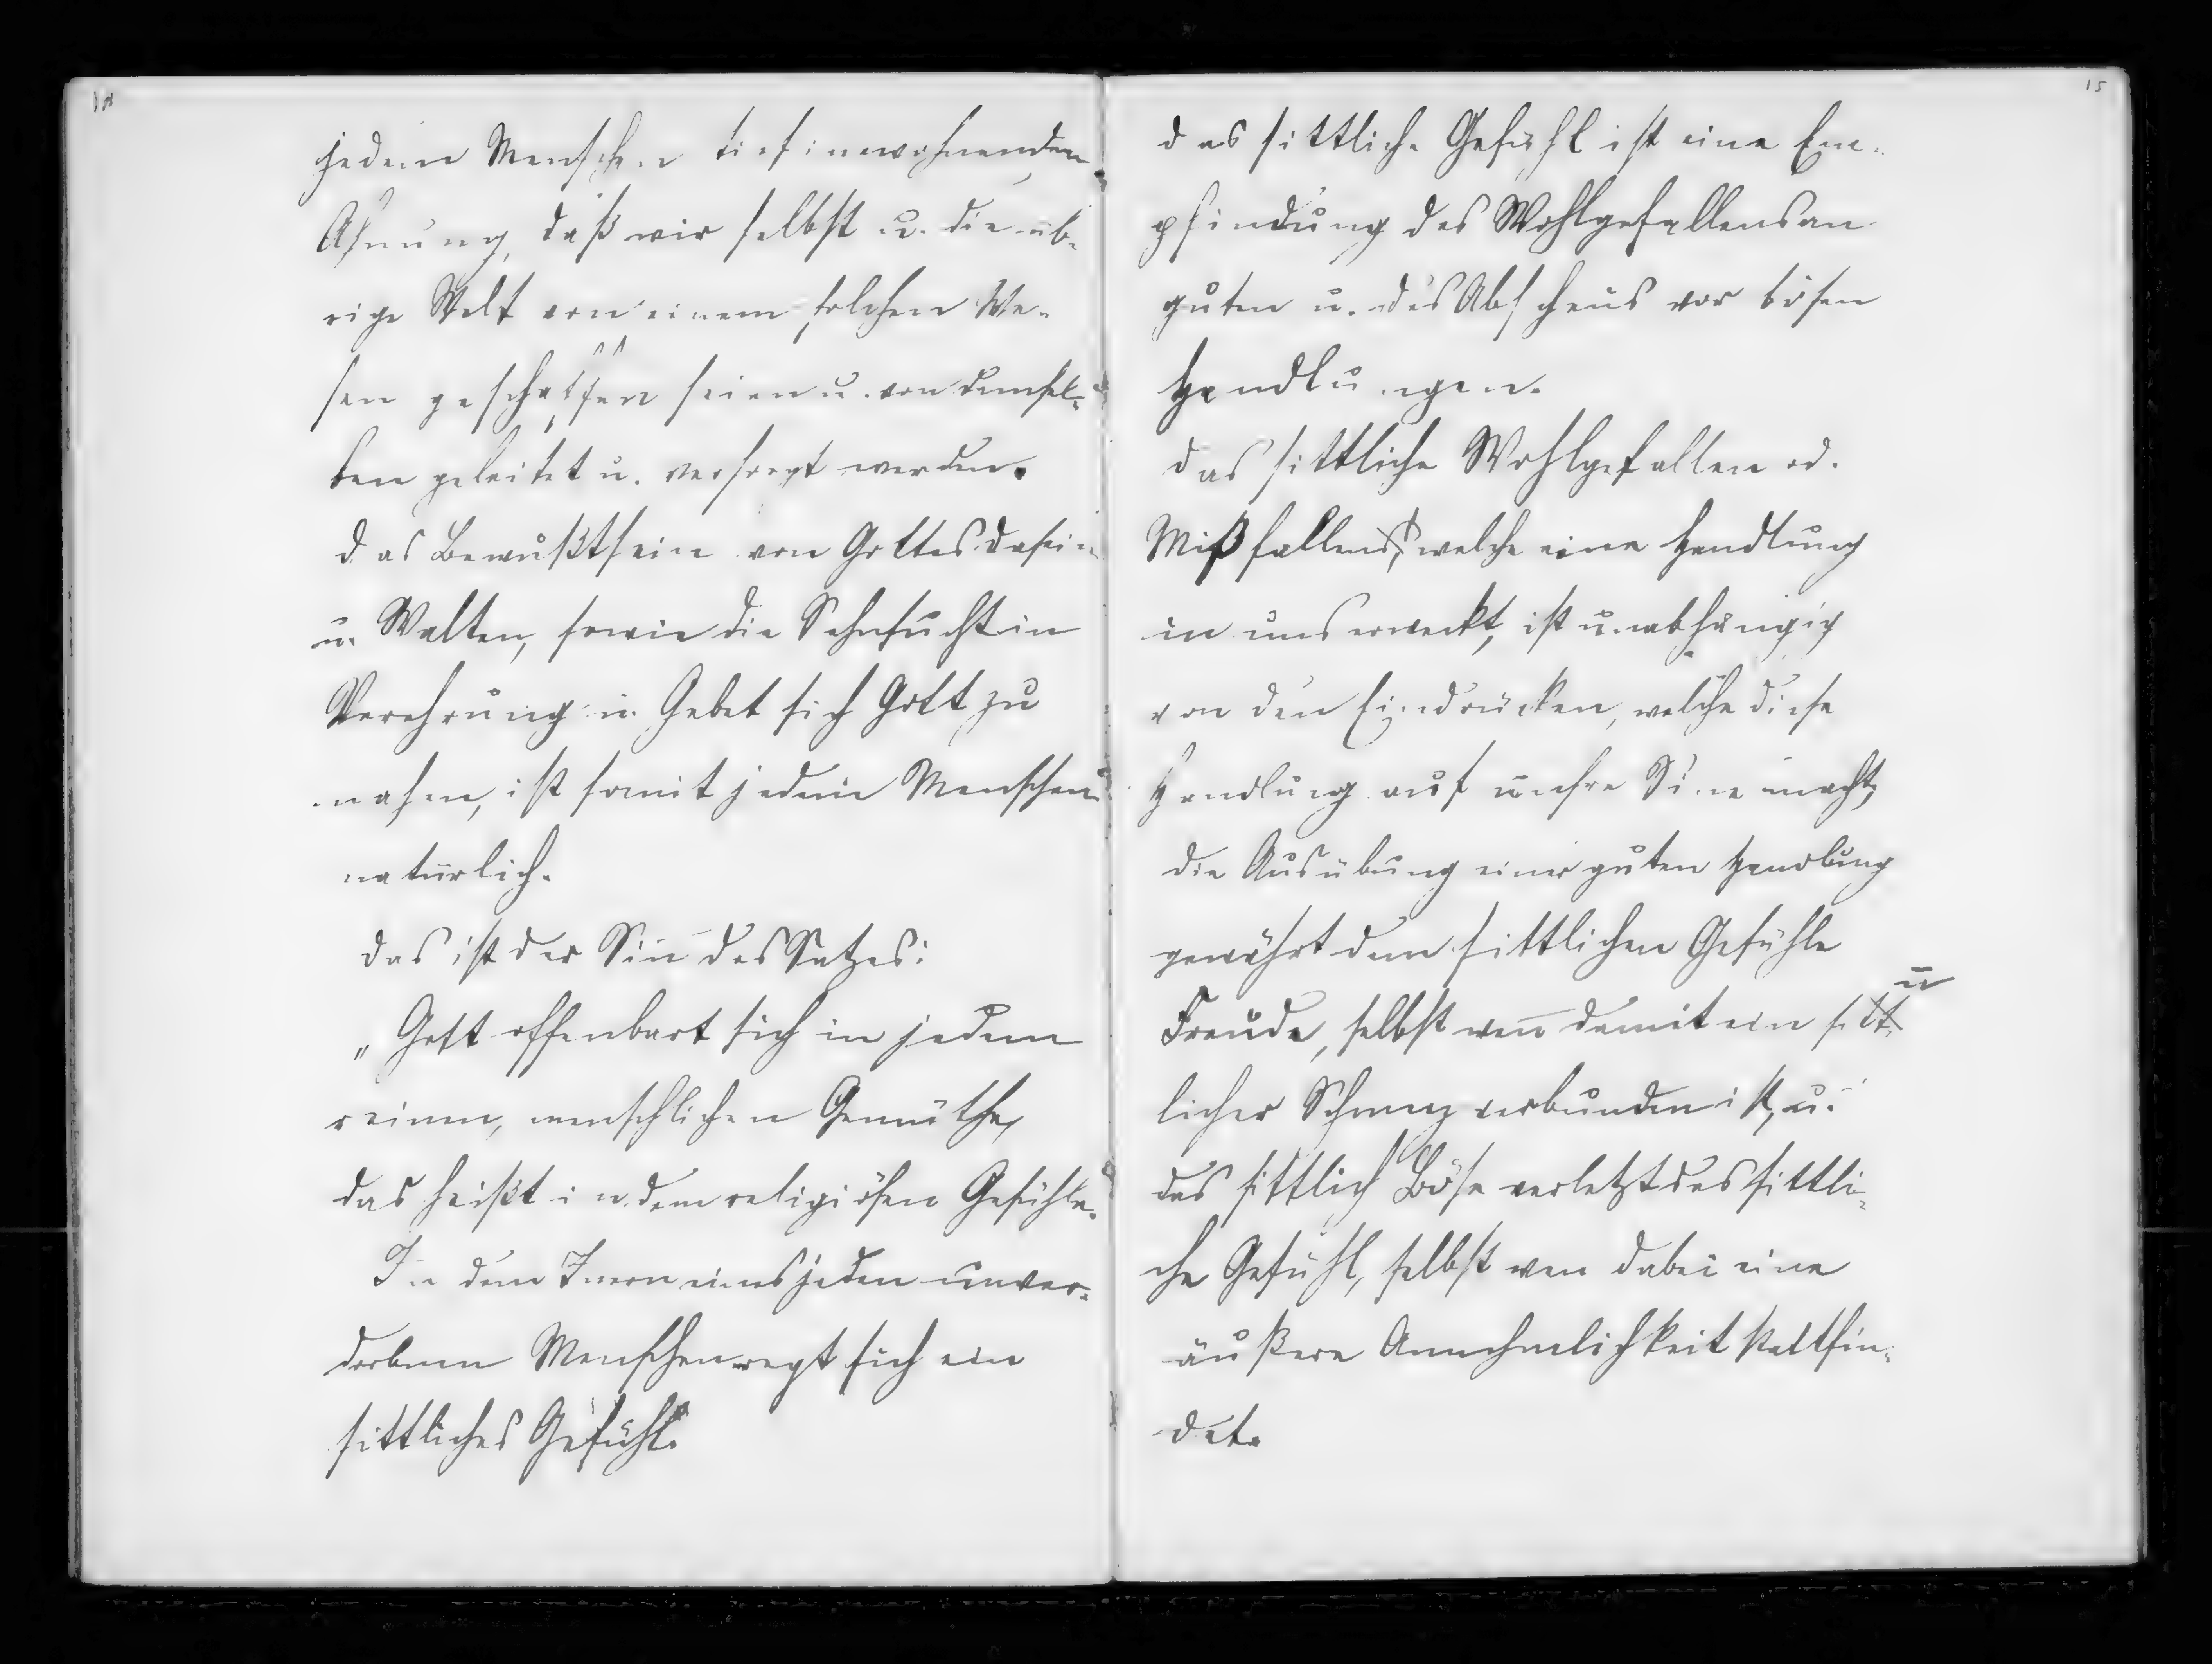 14
jedem Menschen tief inewohnenden
Ahnung, daß wir selbst u. die üb-
rige Welt von einem solchen We-
sen geschaffen seien u. von demsel-
ben geleitet u. versorgt werden.
das Bewußtsein von Gottes Dasein
u. Walten, sowie die Sehnsucht in
Verehrung u. Gebet sich Gott zu
nahen, ist somit jedem Menschen
natürlich.
das ist der Siñ des Satzes:
„Gott offenbart sich in jedem
reinen, menschlichen Gemüthe,
das heißt in dem religiösen Gefühle.
In dem Inern eines jeden unver-
dorbenen Menschen regt sich ein
sittliches Gefühl.
15
das sittliche Gefühl ist eine Em-
pfindung des Wohlgefallens an
guten u. des Abscheus vor bösen
Handlungen.
das sittliche Wohlgefallen od.
Mißfallen, welche eine Handlung
in uns erweckt, ist unabhängig
von den Eindrücken, welche diese
Handlung auf unsre Sine macht,
die Ausübung einer guten Handlung
gewährt dem sittlichen Gefühle
Freude, selbst weñ damit ein sitt-
licher Schmerz verbunden ist, u.
das sittlich Böse verletzt das sittli-
che Gefühl, selbst wen dabei eine
äußere Annehmlichkeit stattfin-
det.